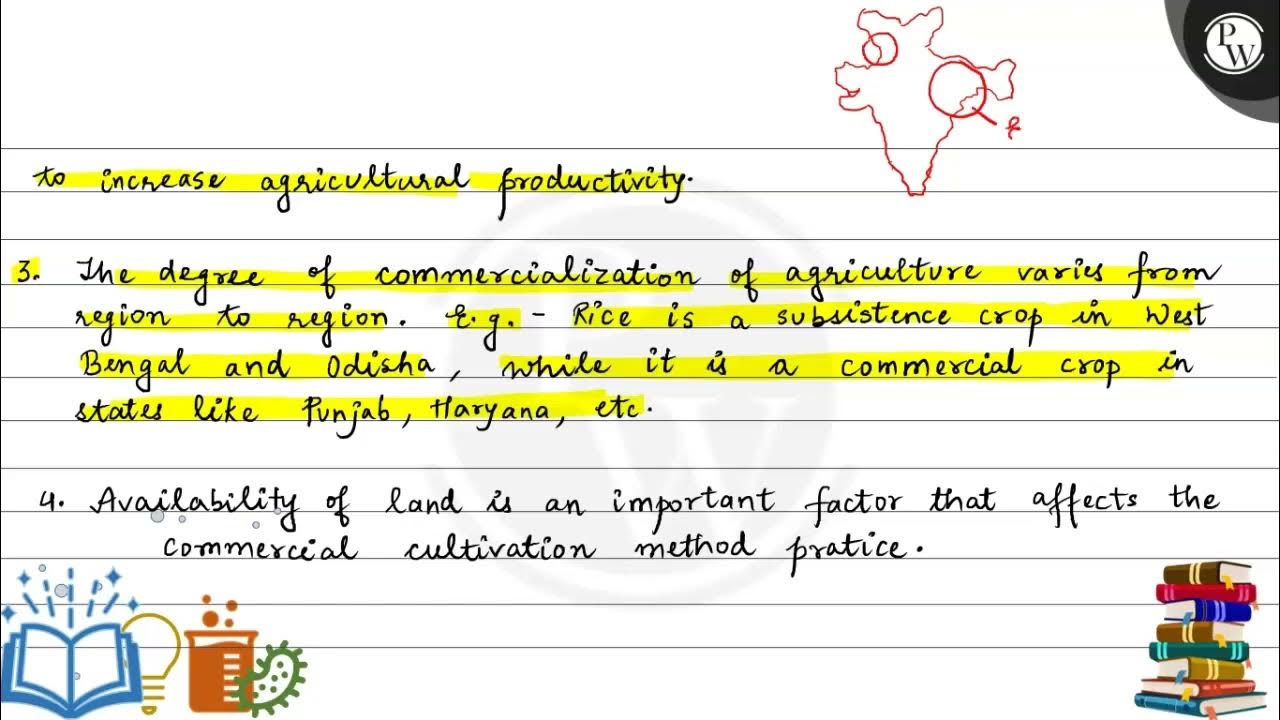 PW
to increase agricultural productivity.
3. The degree of commercialization of agriculture varies from
region to region. E.g. - Rice is a subsistence crop in West
Bengal and Odisha, while it is a commercial crop in
states like Punjab, Haryana, etc.
4. Availability of land is an important factor that affects the
commercial cultivation method pratice.